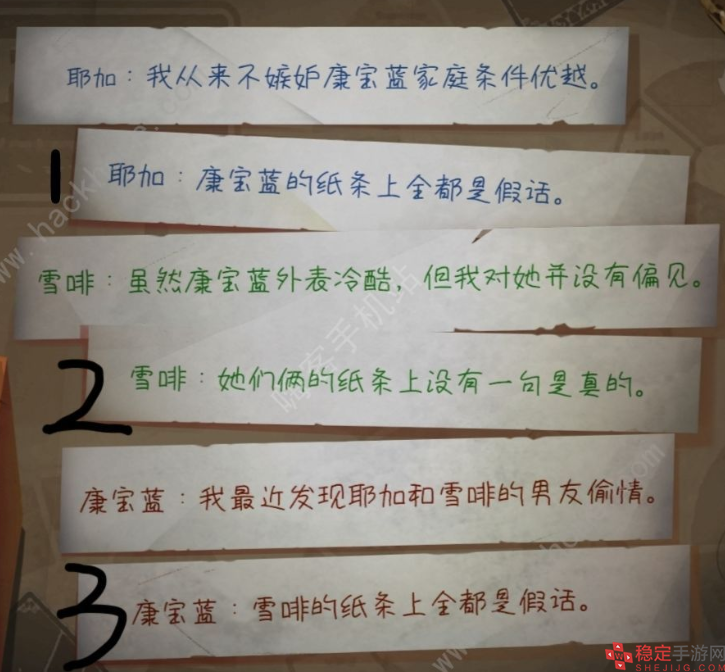 耶加：我从来不嫉妒康宝蓝家庭条件优越。
1
耶加：康宝蓝的纸条上全都是假话。
雪啡：虽然康宝蓝外表冷酷，但我对她并没有偏见。
2
雪啡：她们俩的纸条上没有一句是真的。
康宝蓝：我最近发现耶加和雪啡的男友偷情。
3
康宝蓝：雪啡的纸条上全都是假话。
嗨客手机站
稳定手游网
SHEJIJG.COM